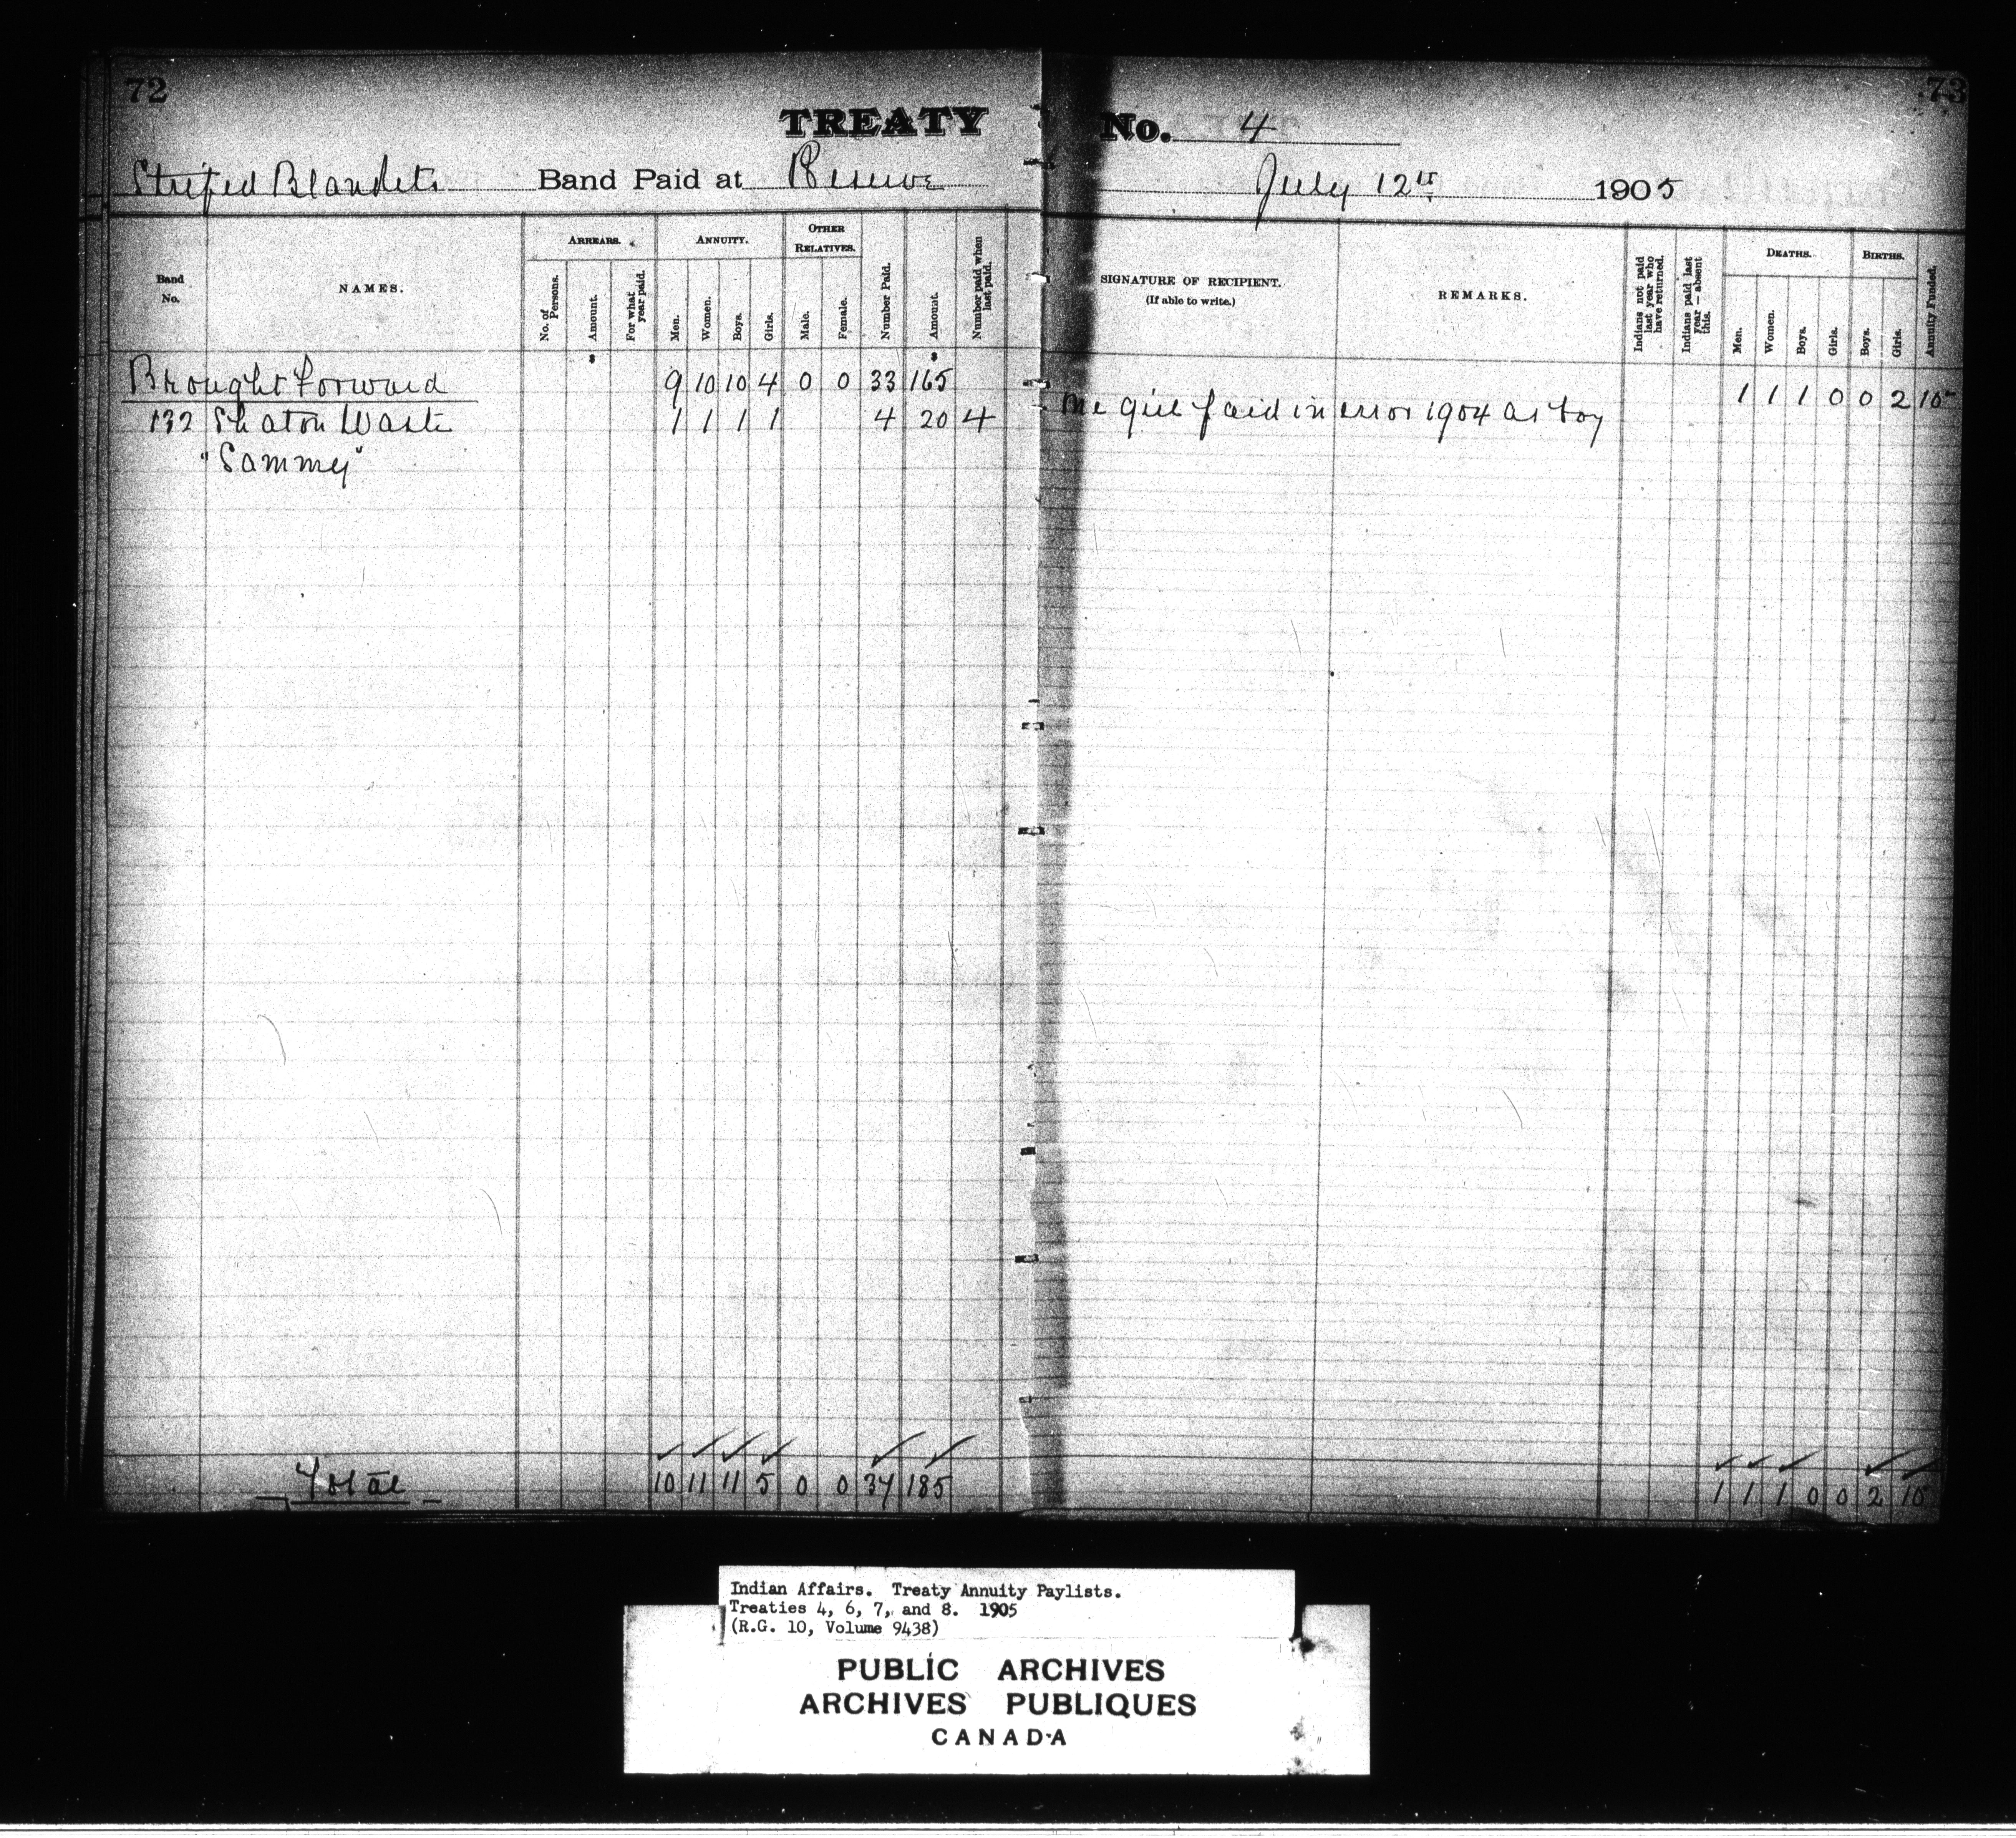 72
73
TREATY No. 4
Striped Blankets Band Paid at Reserve July 12th 1905
Band No.
NAMES.
ARREARS.
No. of Persons.
Amount.
For what year paid.
ANNUITY.
Men.
Women.
Boys.
Girls.
OTHER RELATIVES.
Male.
Female.
Number Paid.
Amount.
Number paid when last paid.
SIGNATURE OF RECIPIENT.
(If able to write.)
REMARKS.
Indians not paid last year who have returned.
Indians paid last year — absent this.
DEATHS.
Men.
Women.
Boys.
Girls.
BIRTHS.
Boys.
Girls.
Annuity Funded.
$ $
Brought Forward 9 10 10 4 0 0 33 165 1 1 1 0 0 2 10
132 Shaton Waste 1 1 1 1 4 20 4 One girl paid in error 1904 as boy
"Sammy"
Total 10 11 11 5 0 0 37 185 1 1 1 0 0 2 10
Indian Affairs. Treaty Annuity Paylists.
Treaties 4, 6, 7, and 8. 1905
(R.G. 10, Volume 9438)
PUBLIC ARCHIVES
ARCHIVES PUBLIQUES
CANADA